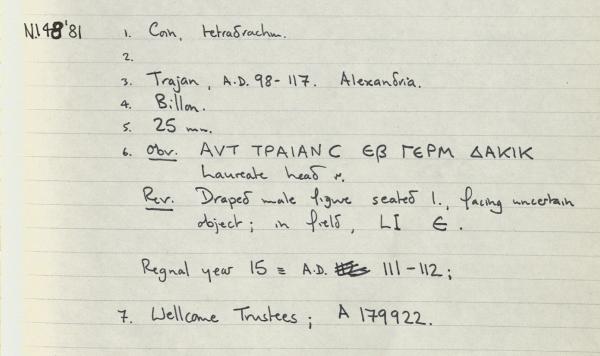 N.148'81 1. Coin, tetradrachm.
2.
3. Trajan, A.D. 98-117. Alexandria.
4. Billon.
5. 25 mm.
6. Obv. ΑVΤ ΤΡΑΙΑΝ C ЄΒ ΓЄΡΜ ΔΑΚΙΚ
Laureate head r.
Rev. Draped male figure seated l., facing uncertain
object; in field, LI Є.
Regnal year 15 = A.D. 111-112;
7. Wellcome Trustees; A 179922.